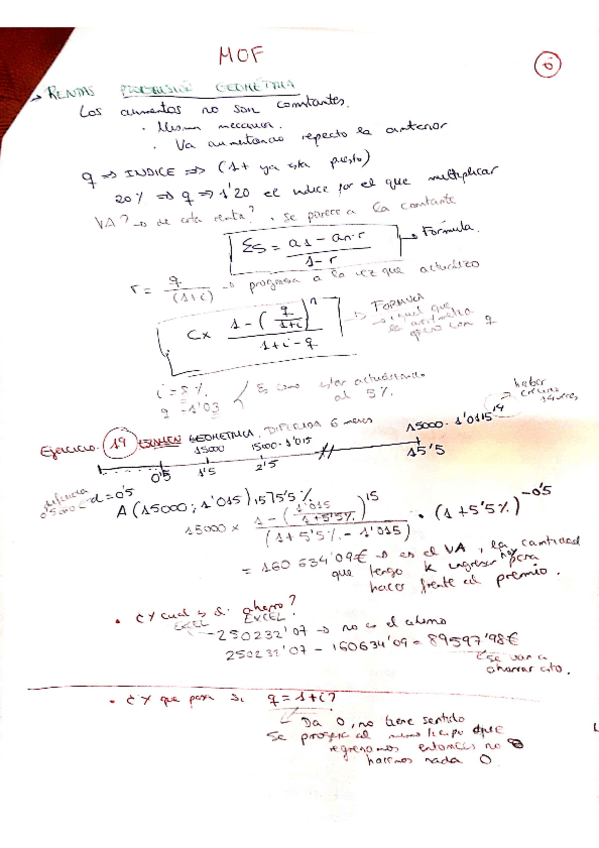 MOF
6
→ RENTAS PROGRESIÓN GEOMÉTRICA
Los aumentos no son constantes.
· Misma mecánica.
· Va aumentando repecto la anterior
q => INDICE => (1+ ya esta puesto)
20% => q => 1'20 el indice por el que multiplicar
VA? → de esta renta? · se parece a la constante
Σs = (a1 - an·r) / (1 - r) → Fórmula.
r = q / (1+i) → progresa a la vez que actualizo
C x (1 - (q / 1+i)^n) / (1+i-q) → FORMULA
→ igual que la aritmética pero con q
i = 8%.
q = 1'03
Es como estar actualizando al 5%.
Ejercicio. 19 GEOMETRICA, DIFERIDA 6 meses
15000 15000·1'015 15000·1'0115^14
haber
0'5 1'5 2'5 // 15'5
diferida
d=0'5
A (15000; 1'015) 15 75'5%
15000 x (1 - (1'015 / 1+5'5%)^15) / (1+5'5% - 1'015) · (1+5'5%)^-0'5
= 160 634'09€ → es el VA, la cantidad
que tengo k ingresar hoy para
hacer frente al premio.
· ¿Y cual es el ahorro?
EXCEL EXCEL
250232'07 → no es el ahorro
250231'07 - 160634'09 = 89597'98€
se van a
ahorrar esto.
· ¿Y que pasa si q=1+i?
Da 0, no tiene sentido
Se progresa al mismo tiempo que
regresamos entonces no
hacemos nada 0.